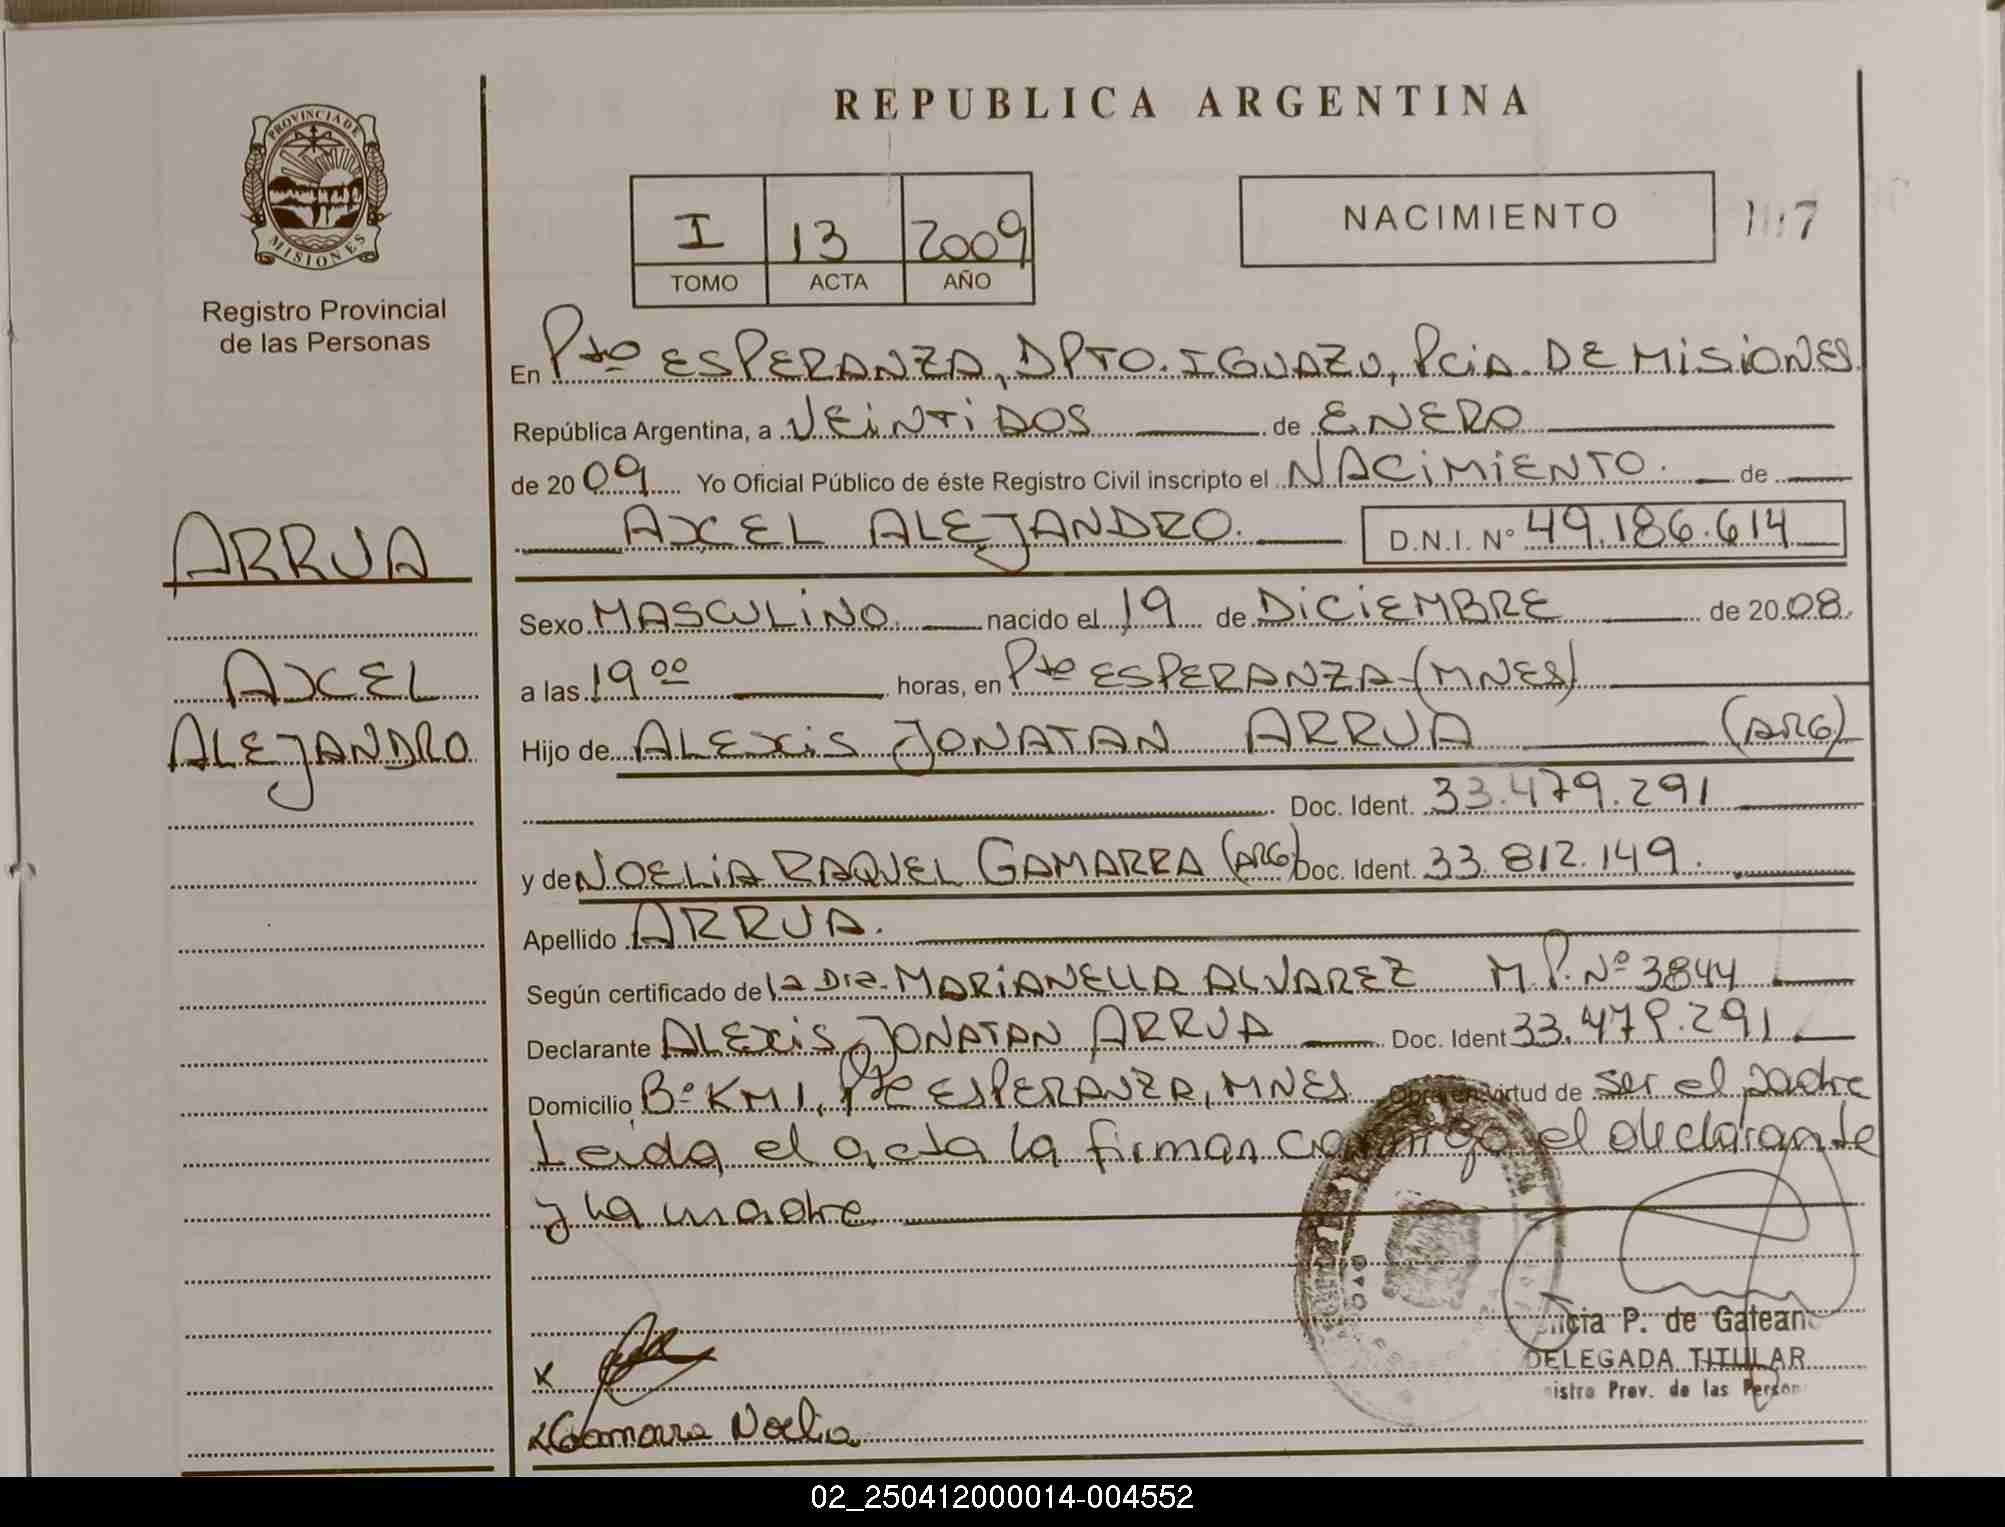 REPUBLICA ARGENTINA
PROVINCIA DE
MISIONES
Registro Provincial
de las Personas
I 13 2009
TOMO ACTA AÑO
NACIMIENTO
En Pto ESPERANZA, DPTO. IGUAZU, PciA. DE MiSiONES
República Argentina, a VEiNTi DOS de ENERO
de 2009 Yo Oficial Público de éste Registro Civil inscripto el NACiMiENTO. de
AXEL ALEJANDRO. D.N.I. Nº 49.186.614
ARRUA
AXEL
ALEJANDRO
Sexo MASCULiNO. nacido el 19 de DiCiEMBRE de 2008.
a las 19 00 horas, en Pto ESPERANZA (MNES)
Hijo de ALEXiS JONATAN ARRUA (ARG)
Doc. Ident. 33.479.291
y de NOELiA RAQUEL GAMARRA (ARG) Doc. Ident. 33.812.149.
Apellido ARRUA.
Según certificado de la Dra. MARiANELLA ALVAREZ M.P. Nº 3844
Declarante ALEXiS JONATAN ARRUA Doc. Ident 33.479.291
Domicilio Bº KM 1, Pto ESPERANZA, MNES Obra en virtud de ser el padre
Leida el acta la firman conmigo el declarante
y la madre
P. de Galeano
DELEGADA TITULAR
Prov. de las Person
x
x Gamarra Noelia
02_250412000014-004552